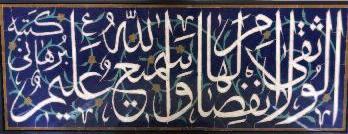 الوثقى لا انفصام لها والله سميع عليم
كتبه برهانی